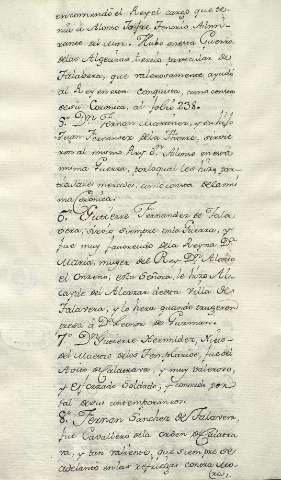 encomendó el Rey el cargo que te-
nia à Alonso Jofre Tenorio Almi-
rante del Mar. Hubo en esta Guerra
de las Algeciras tercio particular de
Talabera, que valerosamente ayudó
al Rey en esta conquista, como consta
de su Coronica, al folio 238.
5º Dn Fernan Martinez, y su hijo
Juan Fernandez de la Torre, servie-
ron al mismo Rey Dn Alonso en esta
misma Guerra, por lo qual les hizo par-
ticulares mercedes, como consta de la mis-
ma Coronica.
6º Gutierre Fernandez de Tala-
vera, sirvio siempre en la Guerra, y
fue muy favorecido de la Reyna Da
Maria, muger del Rey Dn Alonso
el Onzeno, esta Señora, le hizo Al-
cayde del Alcazar de esta Villa de
Talavera, y lo hera quando truxeron
presa à Da Leonor de Guzman.
7º Dn Gutierre Hermildez, Nieto
del Maestre de los Templarios, fue del
Avito de Calatrava, y muy valeroso,
y Esforzado Soldado, y conocido por
tal de sus contemporaneos.
8º Fernan Sanchez de Talavera
fue Cavallero de la Orden de Calatra-
va, y tan valiente, que siempre se
adelantó en las refriegas contra Mo-
ros,